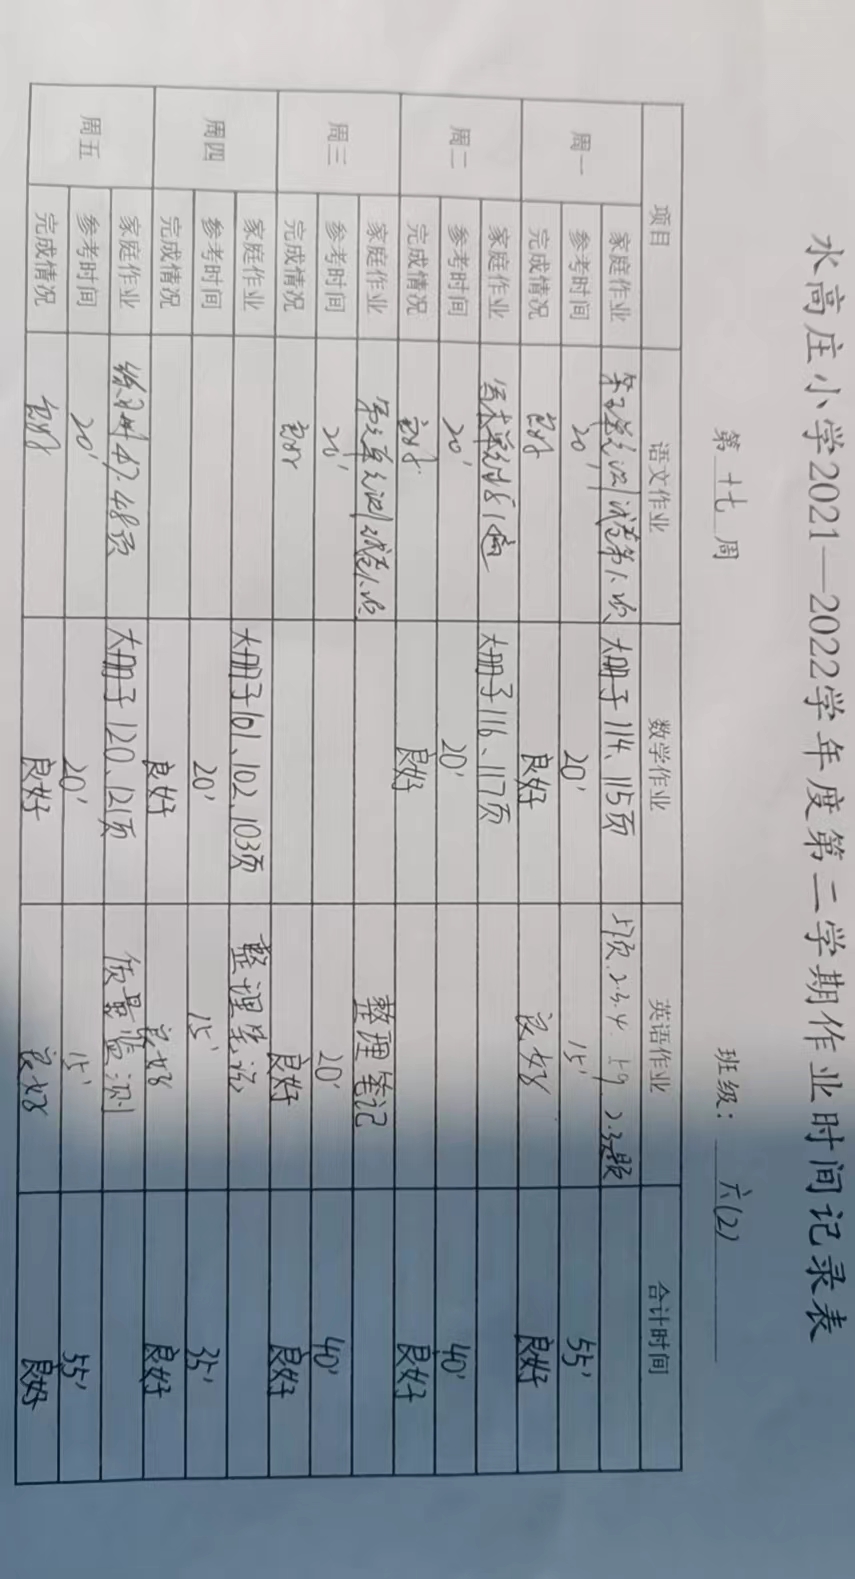 水高庄小学2021—2022学年度第二学期作业时间记录表
第 十七 周 班级： 六(2)
项目 语文作业 数学作业 英语作业 合计时间
周一 家庭作业 大册子114、115页 57页.2.3.4. 59 2.3题
参考时间 20' 20' 15' 55'
完成情况 良好 良好 良好 良好
周二 家庭作业 大册子116、117页
参考时间 20' 20' 40'
完成情况 良好 良好 良好
周三 家庭作业 整理笔记
参考时间 20' 20' 40'
完成情况 良好 良好 良好
周四 家庭作业 大册子101、102、103页 整理笔记
参考时间 20' 15' 35'
完成情况 良好 良好 良好
周五 家庭作业 练习册47.48页 大册子120、121页 质量监测
参考时间 20' 20' 15' 55'
完成情况 良好 良好 良好 良好